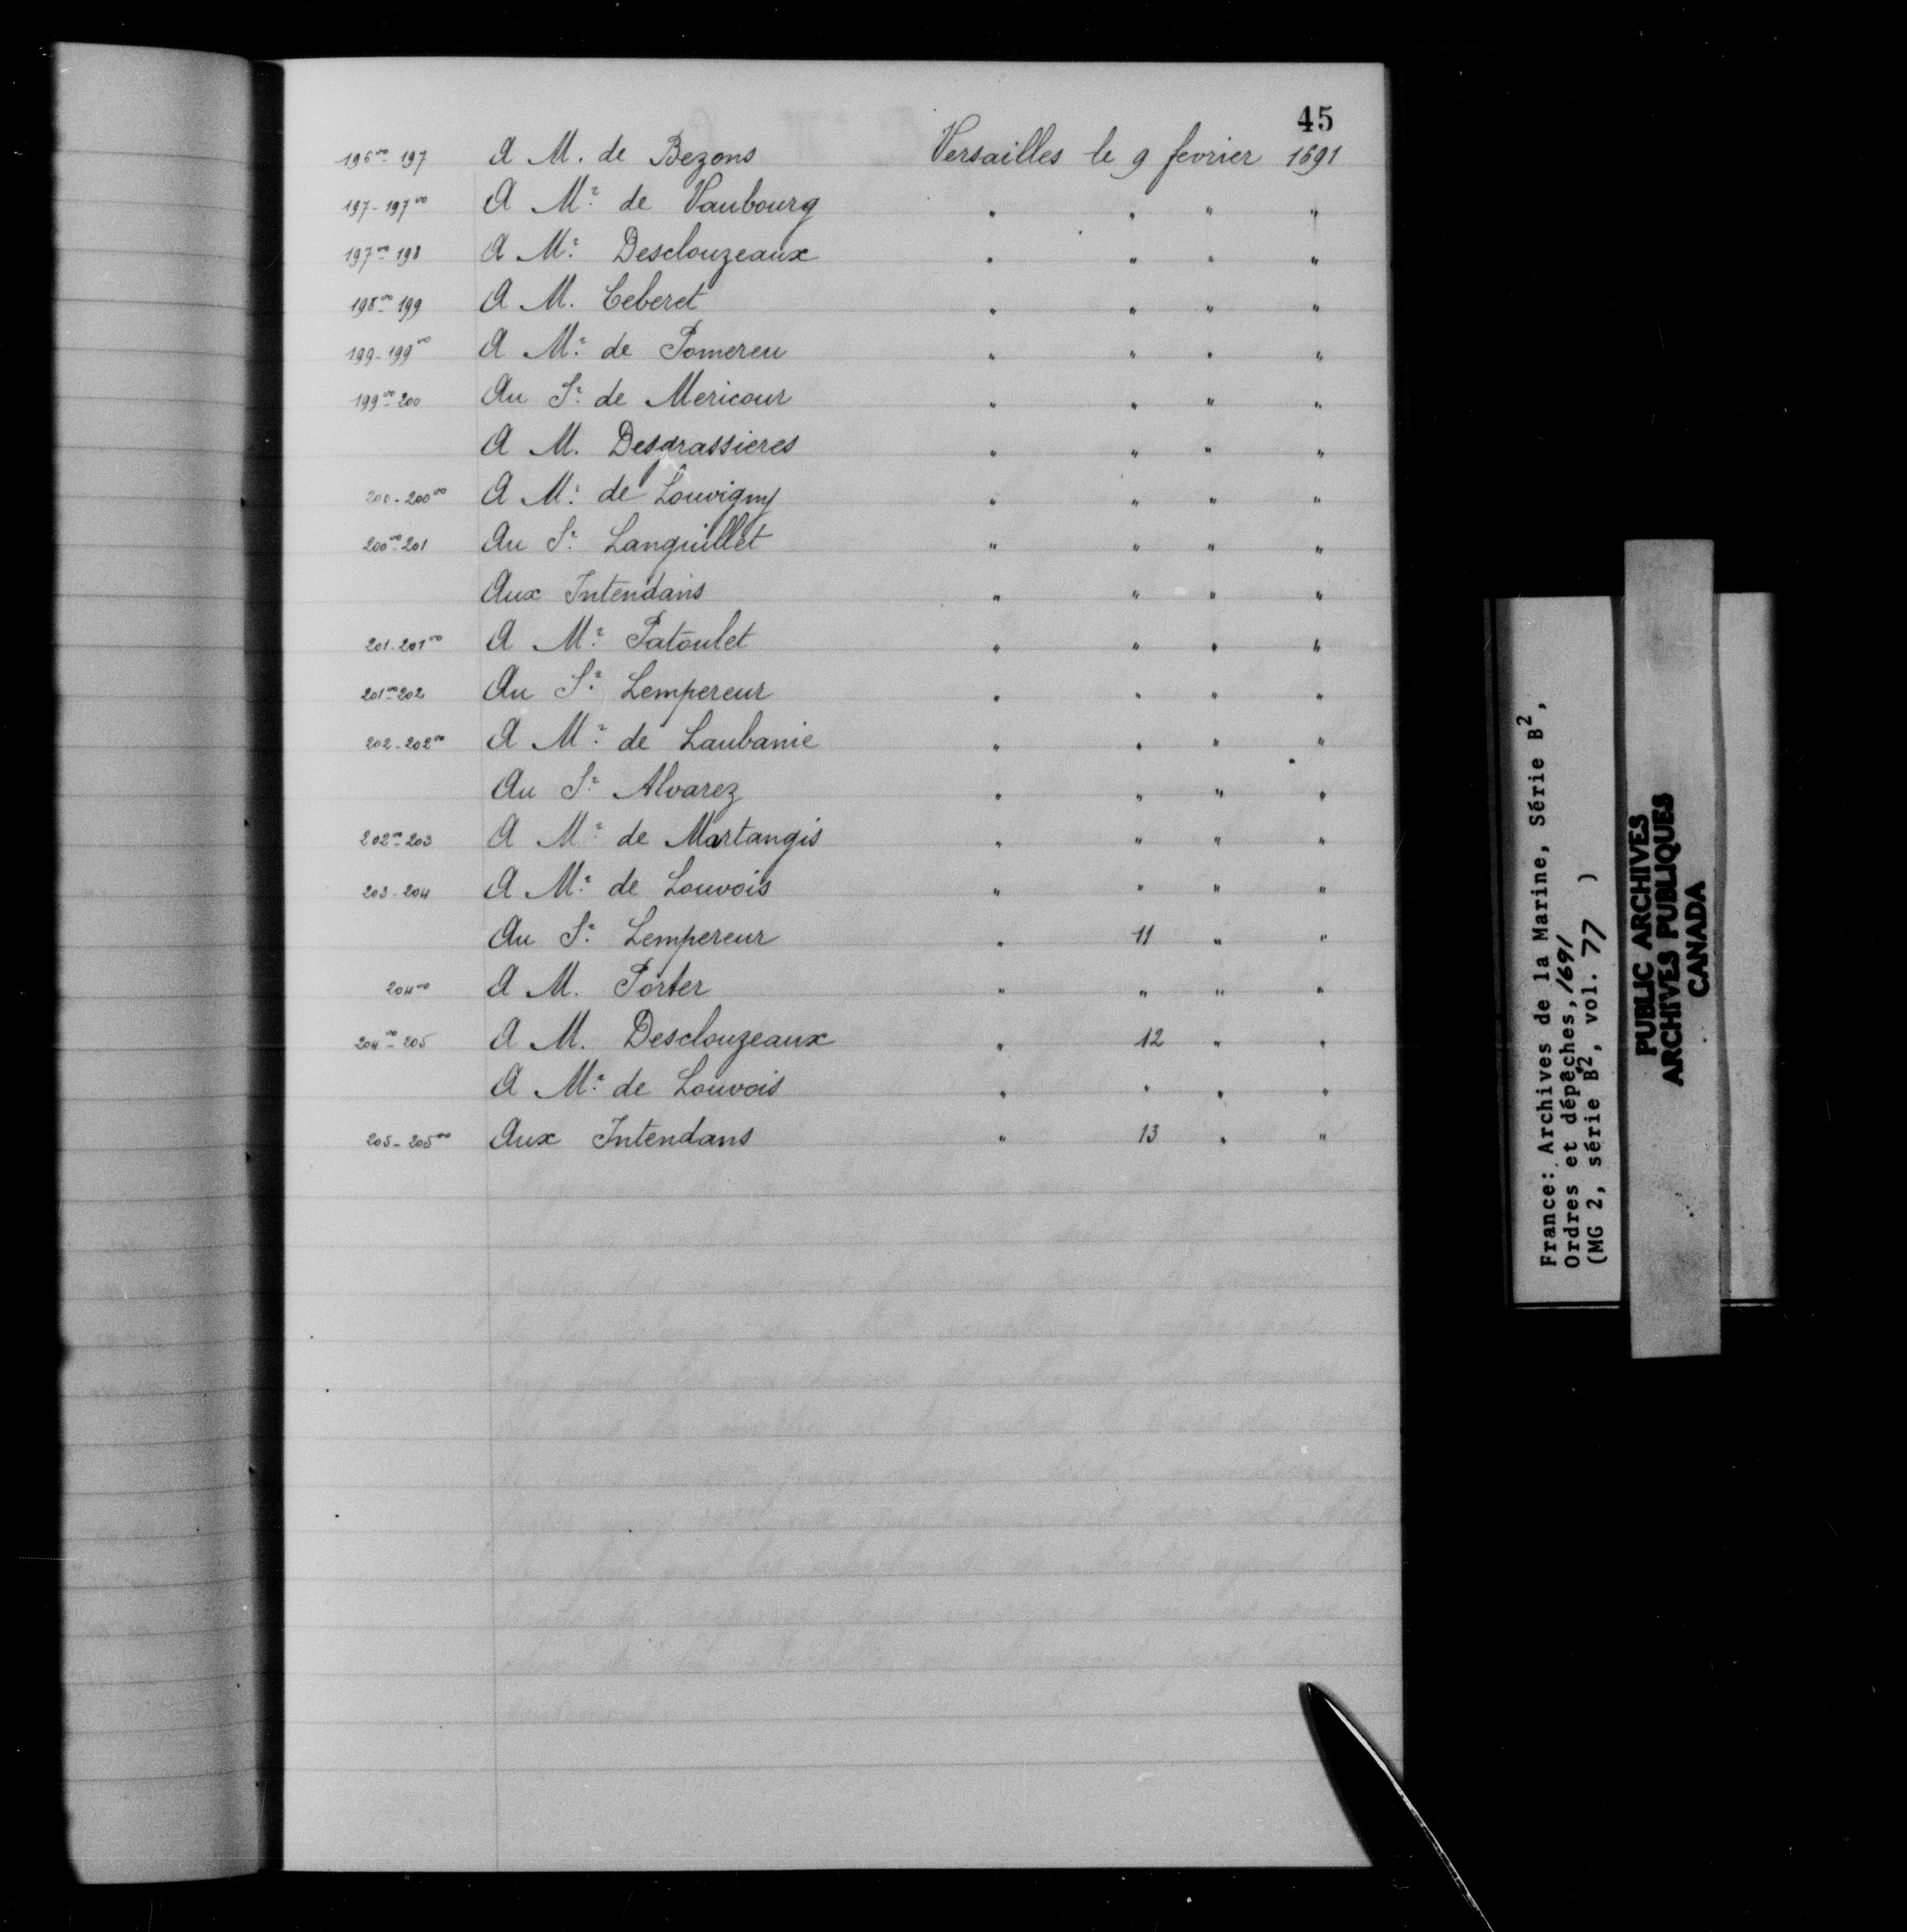 45
196vo-197 A M. de Bezons Versailles le 9 fevrier 1691
197-197vo A Mr. de Vaubourg " " " "
197vo-198 A Mr. Desclouzeaux " " " "
198vo-199 A M. Ceberet " " " "
199-199vo A Mr. de Pomereu " " " "
199vo-200 Au Sr. de Mericour " " " "
A M. Desgrassieres " " " "
200-200vo A Mr. de Louvigny " " " "
200vo-201 Au Sr. Languillet " " " "
Aux Intendans " " " "
201-201vo A Mr. Patoulet " " " "
201vo-202 Au Sr. Lempereur " " " "
202-202vo A Mr. de Laubanie " " " "
Au Sr. Alvarez " " " "
202vo-203 A Mr. de Martangis " " " "
203-204 A Mr. de Louvois " " " "
Au Sr. Lempereur " 11 " "
204vo A M. Porter " " " "
204vo-205 A M. Desclouzeaux " 12 " "
A Mr. de Louvois " " " "
205-205vo Aux Intendans " 13 " "
France: Archives de la Marine, Série B2,
Ordres et dépêches, 1691
(MG 2, série B2, vol. 77 )
PUBLIC ARCHIVES
ARCHIVES PUBLIQUES
CANADA